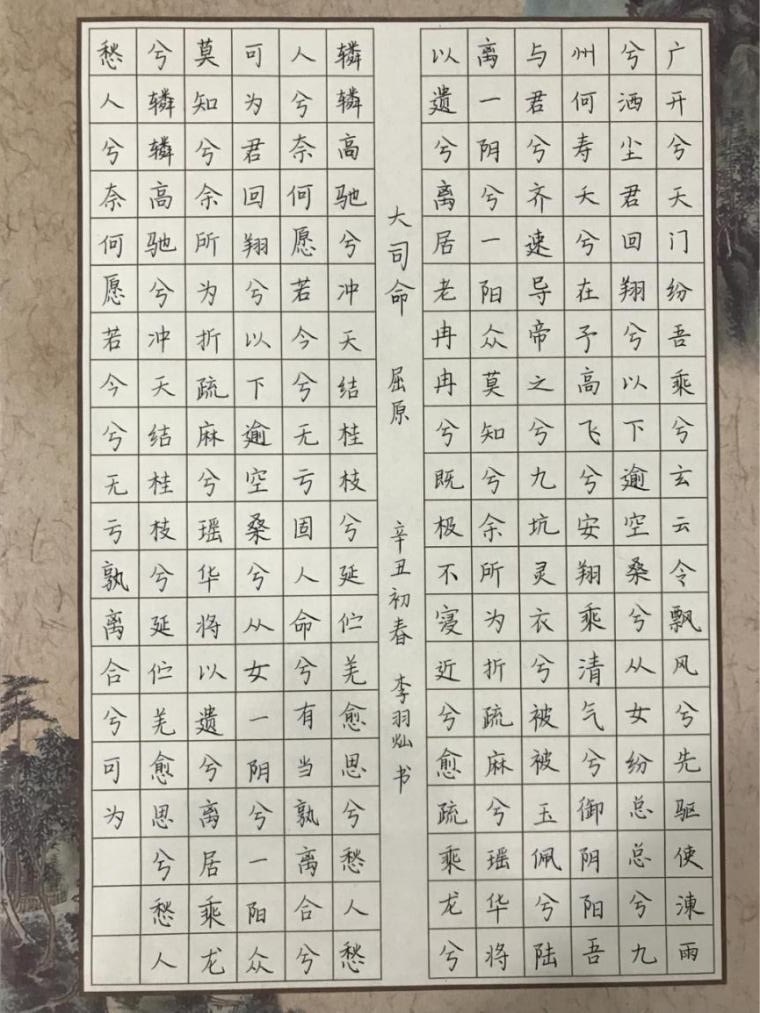 广开兮天门纷吾乘兮玄云令飘风兮先驱使涷雨
兮洒尘君回翔兮以下逾空桑兮从女纷总总兮九
州何寿夭兮在予高飞兮安翔乘清气兮御阴阳吾
与君兮齐速导帝之兮九坑灵衣兮被被玉佩兮陆
离一阴兮一阳众莫知兮余所为折疏麻兮瑶华将
以遗兮离居老冉冉兮既极不寖近兮愈疏乘龙兮
大司命 屈原 辛丑初春 李羽灿 书
辚辚高驰兮冲天结桂枝兮延伫羌愈思兮愁人愁
人兮奈何愿若今兮无亏固人命兮有当孰离合兮
可为君回翔兮以下逾空桑兮从女一阴兮一阳众
莫知兮余所为折疏麻兮瑶华将以遗兮离居乘龙
兮辚辚高驰兮冲天结桂枝兮延伫羌愈思兮愁人
愁人兮奈何愿若今兮无亏孰离合兮可为